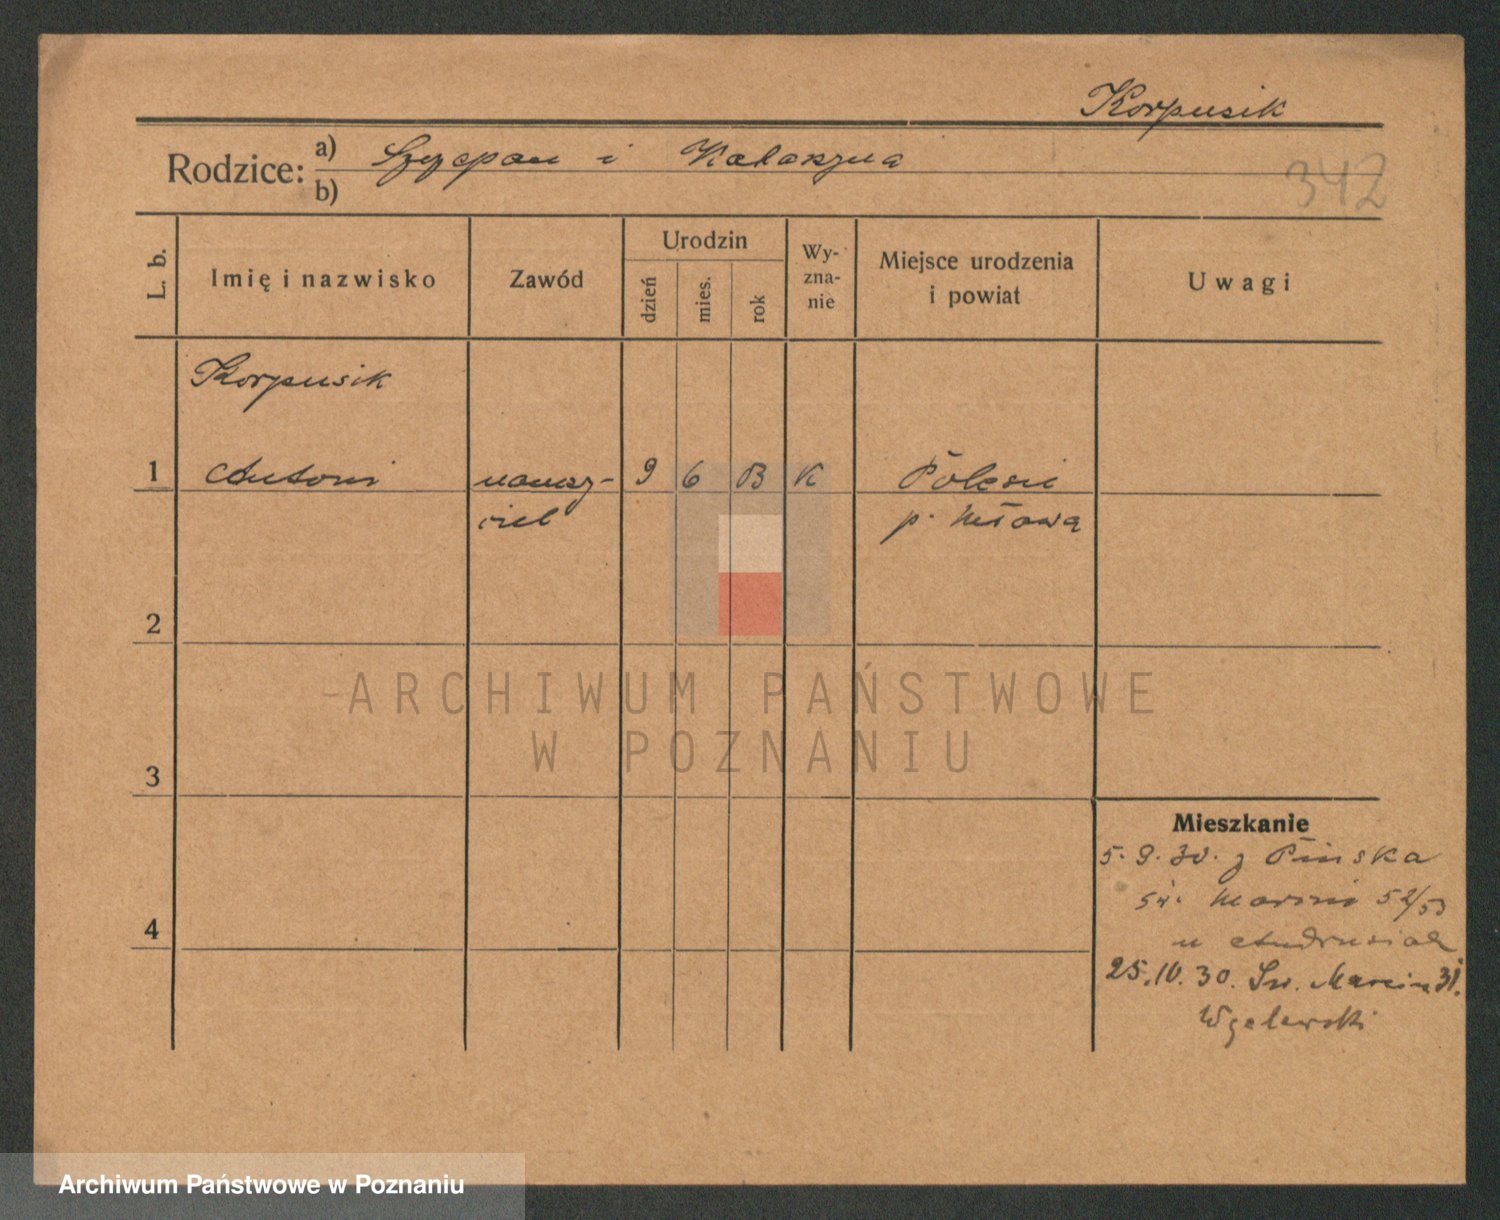 Korpusik
Rodzice: a) Szczepan i Katarzyna
b)
342
L. b.
Imię i nazwisko
Zawód
Urodzin
dzień
mies.
rok
Wy-
zna-
nie
Miejsce urodzenia
i powiat
Uwagi
Korpusik
1 Antoni nauczy- 9 6 K Polesie
ciel p. Mława
2
ARCHIWUM PAŃSTWOWE
W POZNANIU
3
Mieszkanie
5. 9. 30. z Pińska
św. Marcin 52/53
4
u Andrusiak
25.10.30. Św. Marcin 31.
Archiwum Państwowe w Poznaniu